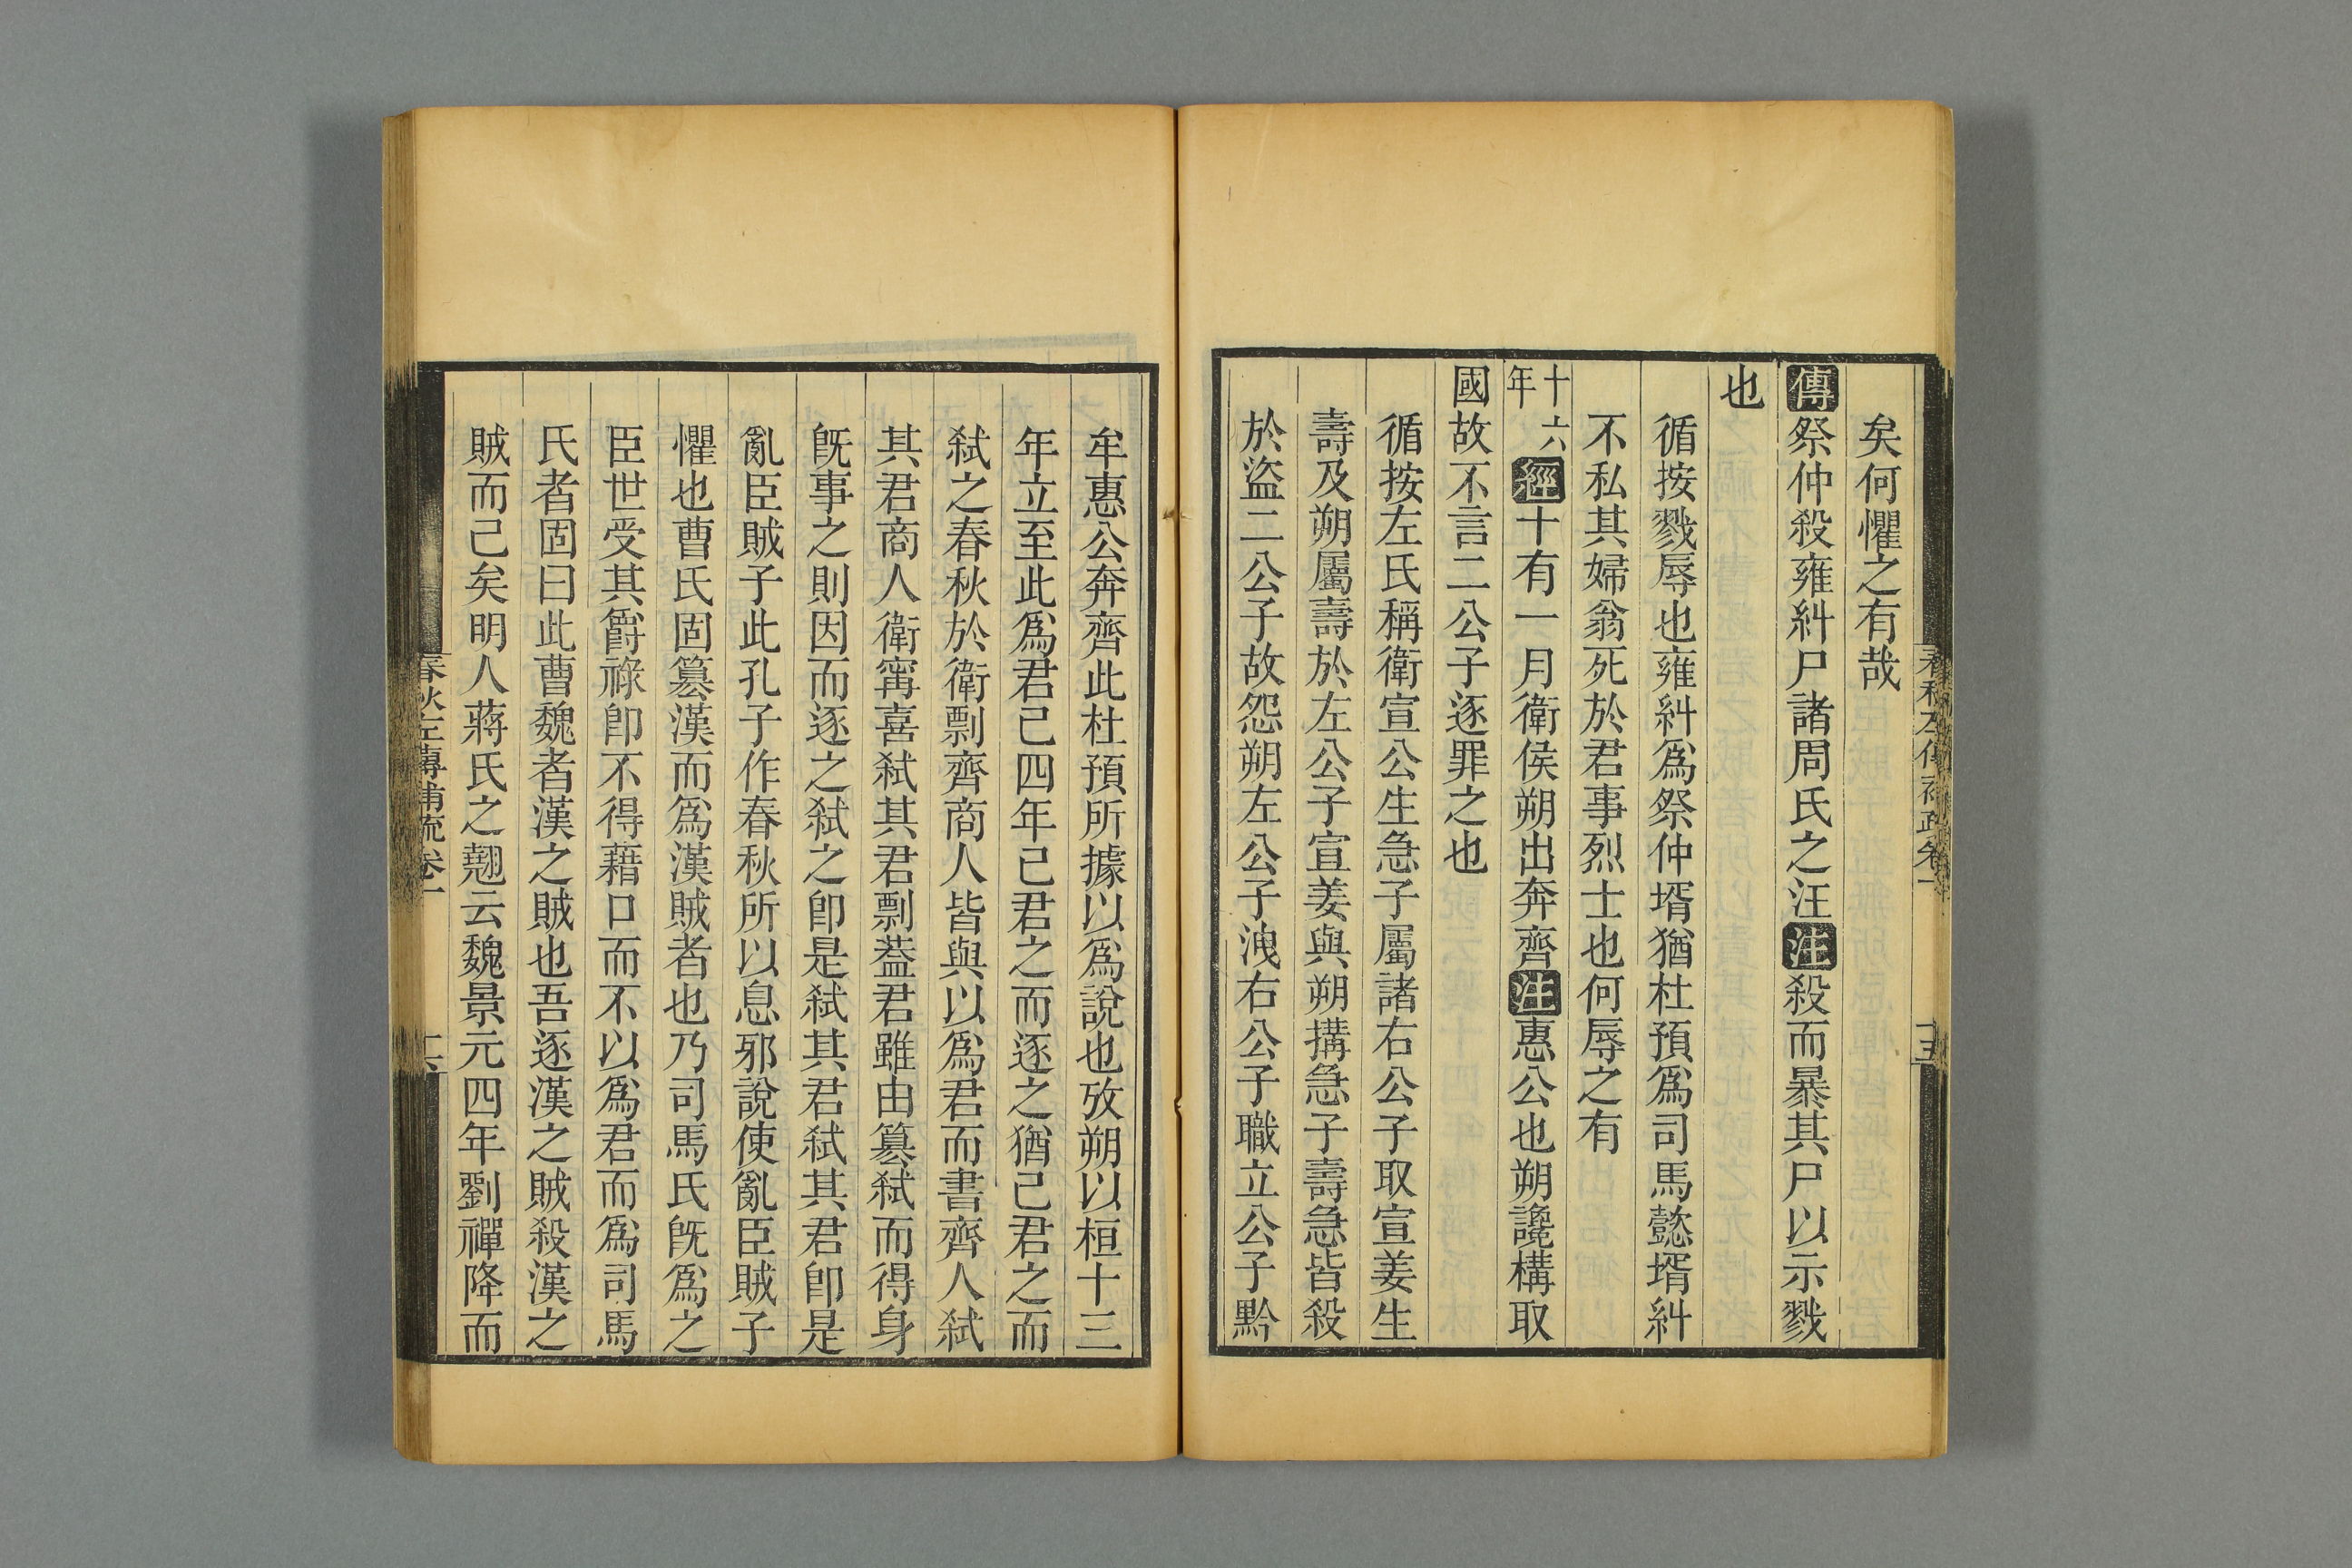 矣何懼之有哉
傳祭仲殺雍糾尸諸周氏之汪注殺而暴其尸以示戮
也
循按戮辱也雍糾爲祭仲壻猶杜預爲司馬懿壻糾
不私其婦翁死於君事烈士也何辱之有
十六年經十有一月衛侯朔出奔齊注惠公也朔讒構取
國故不言二公子逐罪之也
循按左氏稱衛宣公生急子屬諸右公子取宣姜生
壽及朔屬壽於左公子宣姜與朔搆急子壽急皆殺
於盜二公子故怨朔左公子洩右公子職立公子黔
牟惠公奔齊此杜預所據以爲說也攷朔以桓十三
年立至此爲君已四年已君之而逐之猶已君之而
弒之春秋於衛剽齊商人皆與以爲君而書齊人弒
其君商人衛甯喜弒其君剽葢君雖由篡弒而得身
旣事之則因而逐之弒之卽是弒其君弒其君卽是
亂臣賊子此孔子作春秋所以息邪說使亂臣賊子
懼也曹氏固篡漢而爲漢賊者也乃司馬氏旣爲之
臣世受其爵祿卽不得藉口而不以爲君而爲司馬
氏者固曰此曹魏者漢之賊也吾逐漢之賊殺漢之
賊而已矣明人蔣氏之翹云魏景元四年劉禪降而
春秋左傳補疏卷一
十六
春秋左傳補疏卷一
十五